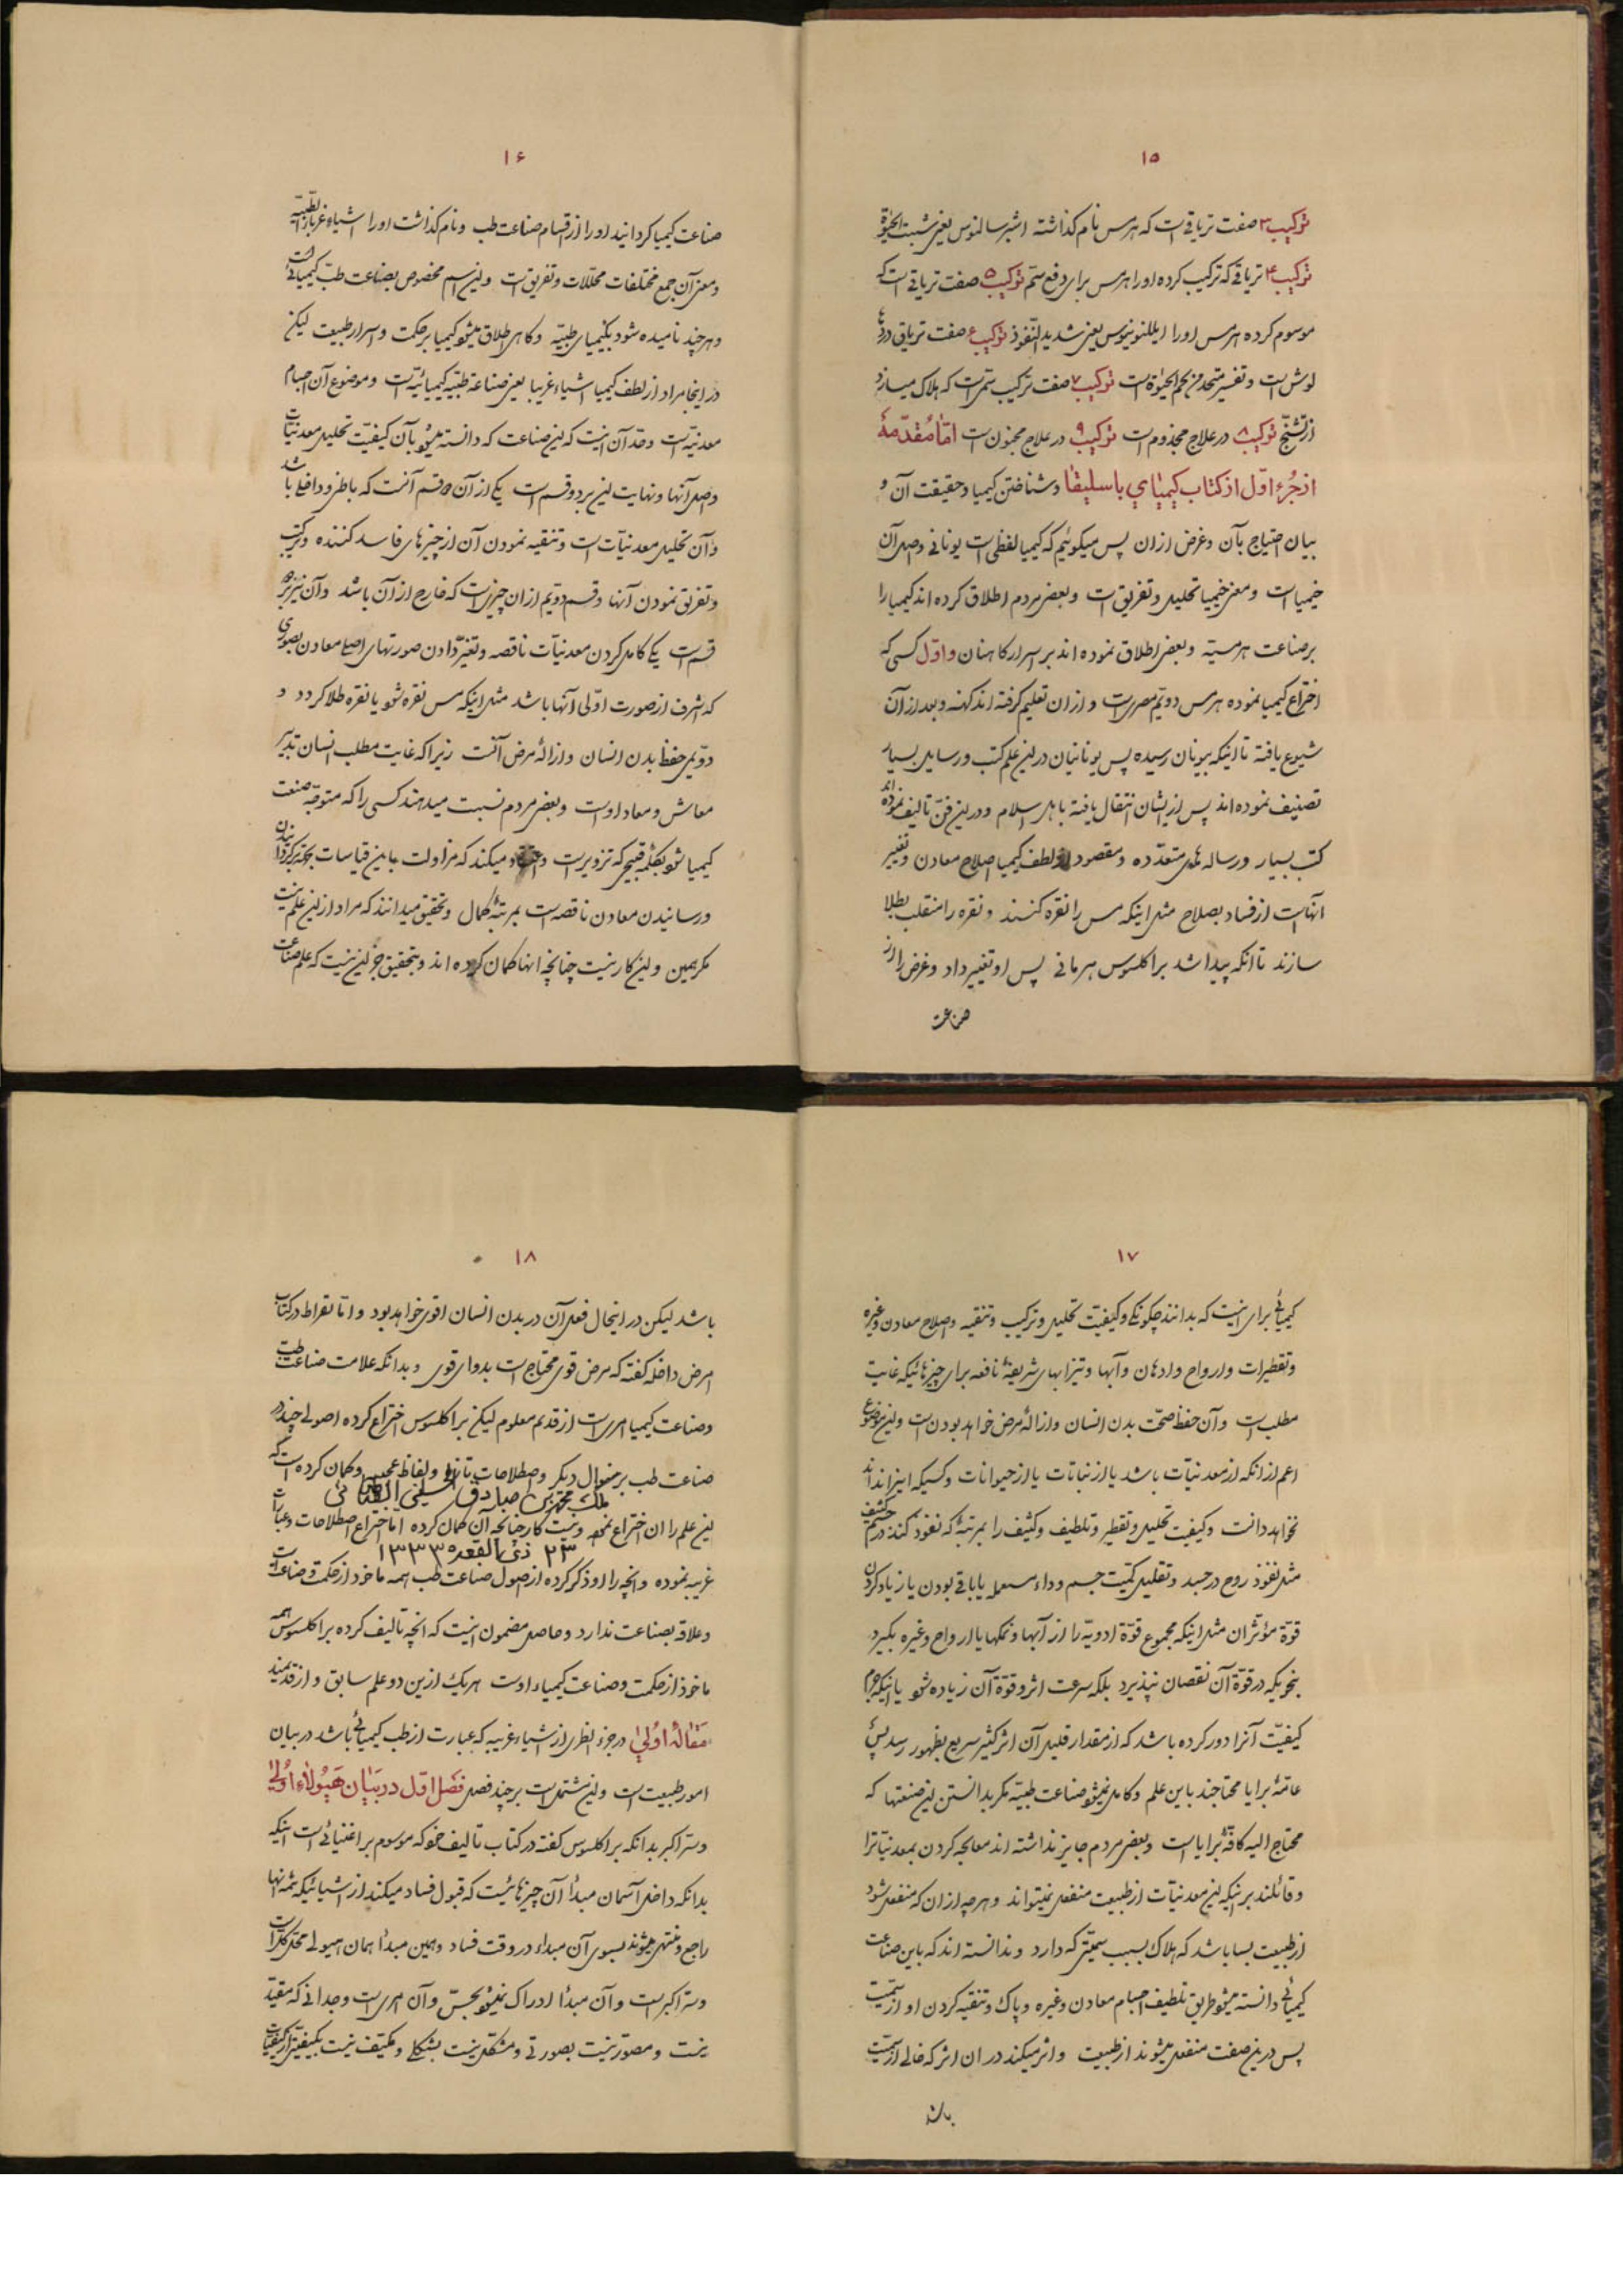 ۱۵
ترکیب ۳ صفت تریاقی است که هرمس نام گذاشته
ترکیب ۴ تریاقی که ترکیب کرده او را هرمس برای دفع سمّ ترکیب ۵ صفت تریاقی است که
موسوم کرده هرمس او را یعنی شدید النّفوذ ترکیب ۶ صفت تریاق
ترکیب ۷ صفت ترکیب سمّی است که هلاک میسازد
از تشنّج ترکیب ۸ در علاج مجذوم است ترکیب ۹ در علاج مجنون است امّا مُقدّمهٔ
از جُزء اوّل از کتاب کیمیای باسلیقا و شناختن کیمیا و حقیقت آن و
بیان احتیاج بآن و غرض از ان پس میگوئیم که کیمیا لفظی است یونانی و اصل آن
خیمیا است و معنی خیمیا تحلیل و تفریق است و بعضی مردم اطلاق کرده اند کیمیا را
بر صناعت هرمسیّه و بعضی اطلاق نموده اند بر اسرار کاهنان و اوّل کسی که
اختراع کیمیا نموده هرمس دویّم مصری است و از ان تعلیم گرفته اند کهنه و بعد از آن
شیوع یافته تا اینکه بیونان رسیده پس یونانیان در این علم کتب و رسایل بسیار
تصنیف نموده اند پس از ایشان انتقال یافته باهل اسلام و در این فنّ تالیف نموده اند
کتب بسیار و رساله های متعدّده و مقصود از لفظ کیمیا اصلاح معادن و تغییر
انها است از فساد بصلاح مثل اینکه مس را نقره کنند و نقره را منقلب بطلا
سازند تا انکه پیدا شد براکلسوس هرمانی پس او تغییر داد و غرض را از
صناعت
۱۶
صناعت کیمیا گردانید او را از اقسام صناعت طب و نام گذاشت او را اشیاء غریبا
و معنی آن جمع مختلفات محلّلات و تفریق است و این اسم مخصوص بصناعت طبّ کیمیائی است
و هر چند نامیده شود بکیمیای طبیّه و گاهی اطلاق میشود کیمیا بر حکمت و اسرار طبیعت لیکن
در اینجا مراد از لفظ کیمیا اشیاء غریبا یعنی صناعة طبیّه کیمیائیّه است و موضوع آن اجسام
معدنیّه است و حدّ آن اینست که این صناعت که دانسته میشود بآن کیفیّت تحلیل معدنیّات
و اصل آنها و نهایت این بر دو قسم است یکی از آن دو قسم آنست که باطن و داخل باشد
و آن تحلیل معدنیّات است و تنقیه نمودن آن از چیزهای فاسد کننده و ترکیب
و تفریق نمودن آنها و قسم دویّم از ان چیزی است که خارج از آن باشد و آن نیز بر دو
قسم است یکی کامل کردن معدنیّات ناقصه و تغیّر دادن صورتهای اصل معادن بصورتی
که اشرف از صورت اوّلی آنها باشد مثل اینکه مس نقره شود یا نقره طلا گردد و
دوّیمی حفظ بدن انسان و ازالهٔ مرض آنست زیرا که غایت مطلب انسان تدبیر
معاش و معاد اوست و بعضی مردم نسبت میدهند کسی را که متوجّه صنعت
کیمیا شود بکلمه قبیحی که تزویر است و میکند که مزاولت باین قیاسات
و رسانیدن معادن ناقصه است بمرتبهٔ کمال و تحقیق میدانند که مراد از این علم نیست
مگر همین و این کار نیست چنانچه انها گمان کرده اند و بتحقیق جز این نیست که علم صناعت
۱۷
کیمیائی برای اینست که بدانند چگونگی و کیفیّت تحلیل و ترکیب و تنقیه و اصلاح معادن و غیره
و تقطیرات و ارواح و ادهان و آبها و تیزابهای شریفهٔ نافعه برای چیزهائیکه غایت
مطلب است و آن حفظ صحّت بدن انسان و ازالهٔ مرض خواهد بودن است و این موضوع
اعم از انکه از معدنیّات باشد یا از نباتات یا از حیوانات و کسیکه اینرا نداند
نخواهد دانست و کیفیّت تحلیل و تقطیر و تلطیف و کثیف را بمرتبهٔ که نفوذ کند در جسم کثیف
مثل نفوذ روح در جسد و تقلیل کمیّت جسم و داء یا باقی بودن یا زیاد کردن
قوّة مؤثر ان مثل اینکه مجموع قوّة ادویّه را از آبها و نمکها یا ارواح و غیره بگیرد
بنحویکه در قوّة آن نقصان نپذیرد بلکه سرعت اثر و قوّة آن زیاده شود یا اینکه جرم
کیفیّت آنرا دور کرده باشد که از مقدار قلیل آن اثر کثیر سریع بظهور رسد پس
عامّهٔ برایا محتاجند باین علم و کامل نمیشود صناعت طبیّه مگر بدانستن این صنعتها که
محتاج الیه کافّهٔ برایا است و بعضی مردم جایز نداشته اند معالجه کردن بمعدنیّات را
و قائلند بر اینکه این معدنیّات از طبیعت منفعل نمیتواند و هر چه از ان که منفعل شود
از طبیعت بسا باشد که هلاک بسبب سمیّتی که دارد و ندانسته اند که باین صناعت
کیمیائی دانسته میشود طریق تلطیف اجسام معادن و غیره و پاک و تنقیه کردن او از سمیّت
پس در این صفت منفعل میشوند از طبیعت و اثر میکند در ان اثر که خالی از سمیّت
باشد
۱۸
باشد لیکن در اینحال فعل آن در بدن انسان اقوی خواهد بود و امّا بقراط در کتاب
امراض داخله گفته که مرض قوی محتاج است بدوای قوی و بدانکه علامت صناعت طب
و صناعت کیمیا امری است از قدیم معلوم لیکن براکلسوس اختراع کرده اصولی چند در
صناعت طب بر منوال دیگر و اصطلاحات تازه و الفاظ عجیبی و گمان کرده است که
ملک محمّد بن صادق الحسینی
این علم را ان اختراع نموده و نیست کار چنانچه آن گمان کرده امّا اختراع اصطلاحات و عبارات
۲۳ ذی القعده ۱۳۳۳
غریبه نموده و انچه را او ذکر کرده از اصول صناعت طب همه ماخوذ از حکمت و صناعت است
و علاقه بصناعت ندارد و حاصل مضمون اینست که انچه تالیف کرده براکلسوس همه
ماخوذ از حکمت و صناعت کیمیاء اوست هر یک از این دو علم سابق و از قدیمند
مَقالهٔ اُولیٰ در جزء نظری از اشیاء غریبه که عبارت از طب کیمیائی باشد در بیان
امور طبیعت است و این مشتمل است بر چند فصل فصل اوّل در بیان هیولاء اُولیٰ
و سرّ اکبر بدانکه براکلسوس گفته در کتاب تالیف خود که موسوم است اینکه
بدانکه داخل آسمان مبدأ آن چیزهائیست که قبول فساد میکند از اشیائیکه ثمه انها
راجع و منتهی میشوند بسوی آن مبداء در وقت فساد و همین مبدأ همان هیولی
و سرّ اکبر است و آن مبدأ ادراک نمیشود بحسّ و آن امری است وجدانی که مقیّد
نیست و مصوّر نیست بصورتی و مشکّل نیست بشکلی و مکیّف نیست بکیفیّتی از کیفیّات